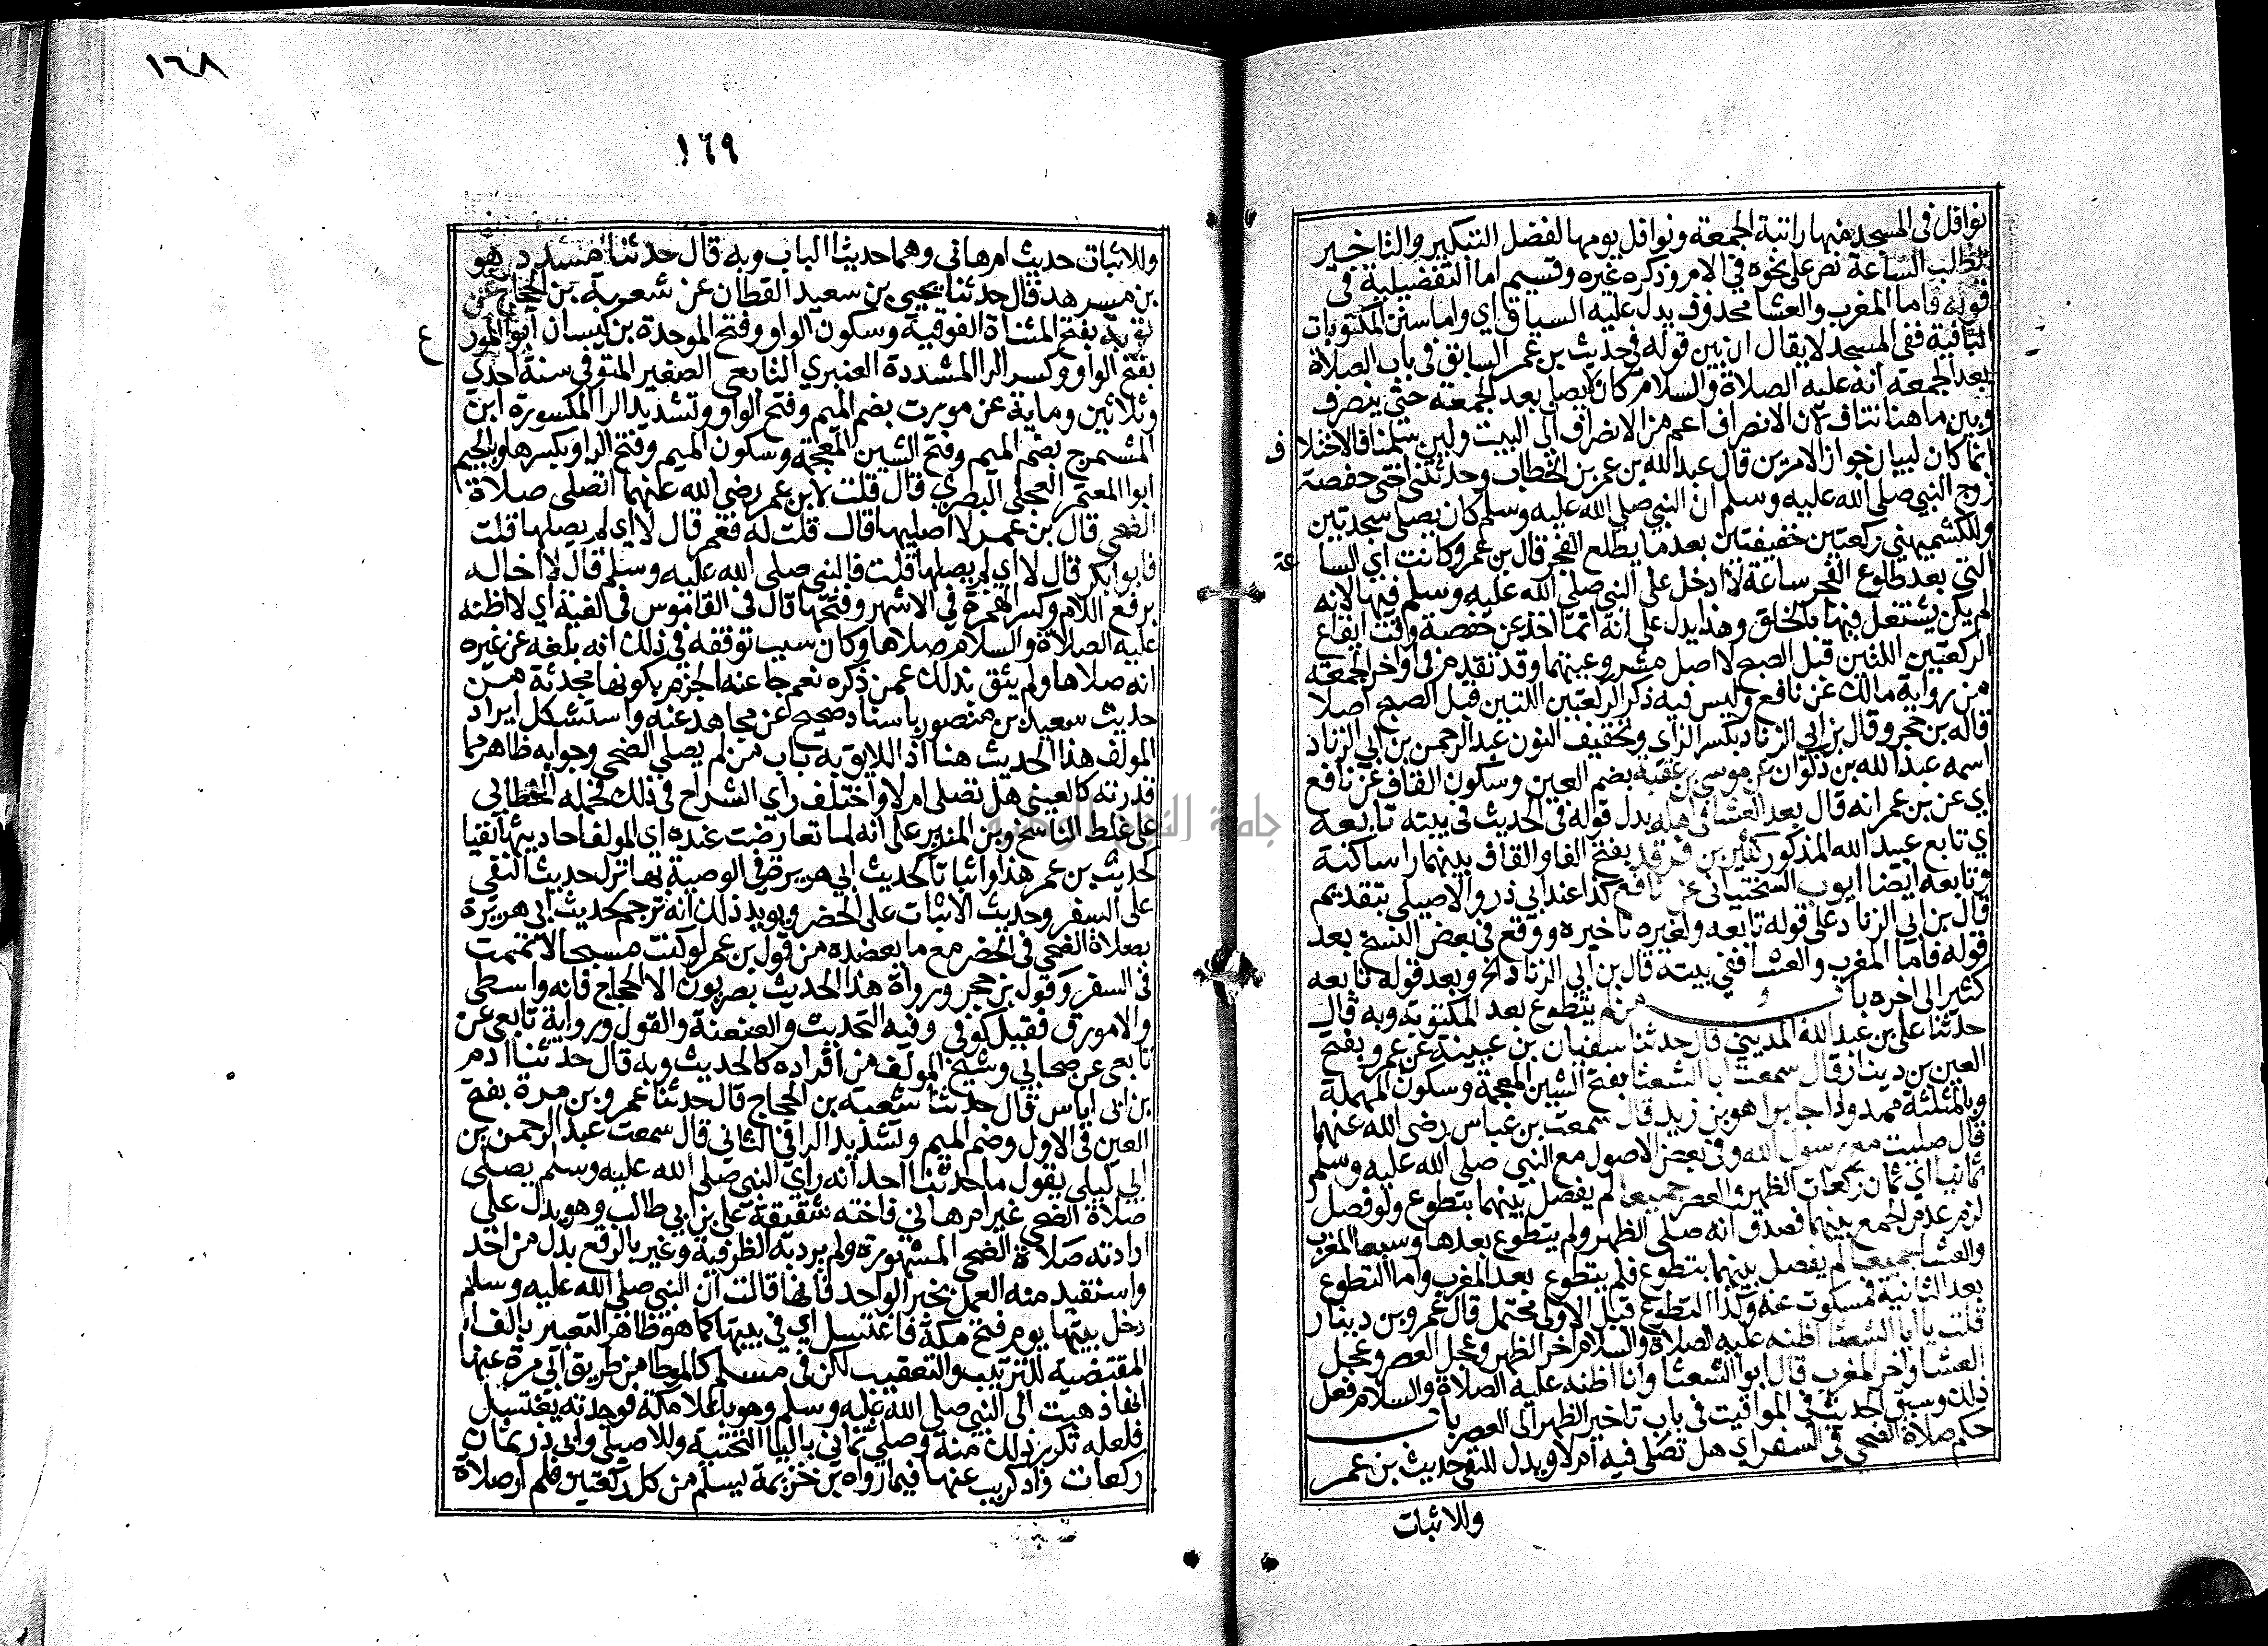 نوافل في المسجد منها راتبة الجمعة ونوافل يومها لفضل التبكير والتاخير
لطلب الساعة نص على نحوه في الام وذكره غيره وقسيم اما التفضيلية في
قوله فاما المغرب والعشا محذوف يدل عليه السياق اي واما سنن المكتوبات
الباقية ففي المسجد لا يقال ان بين قوله في حديث بن عمر السابق في باب الصلاة
بعد الجمعة انه عليه الصلاة والسلام كان لا يصلي بعد الجمعة حتى ينصرف
وبين ما هنا تناف لان الانصراف اعم من الانصراف الى البيت ولين سلمنا فالاختلاف
انما كان لبيان جواز الامرين قال عبد الله بن عمر بن الخطاب وحدثتني اختي حفصة
زوج النبي صلى الله عليه وسلم ان النبي صلى الله عليه وسلم كان يصلي سجدتين
وللكشميهني ركعتين خفيفتين بعد ما يطلع الفجر قال بن عمر وكانت اي الساعة
التي بعد طلوع الفجر ساعة لا ادخل على النبي صلى الله عليه وسلم فيها لانه
لم يكن يشتغل فيها بالخلق وهذا يدل على انه انما اخذ عن حفصة وقت ايقاع
الركعتين اللتين قبل الصبح لا اصل مشروعيتهما وقد تقدم في اواخر الجمعة
من رواية مالك عن نافع وليس فيه ذكر الركعتين اللتين قبل الصبح اصلا
قاله بن حجر وقال بن ابي الزناد بكسر الزاي وتخفيف النون عبد الرحمن بن ابي الزناد
اسمه عبد الله بن ذكوان عن موسى بن عقبة بضم العين وسكون القاف عن نافع
اي عن بن عمر انه قال بعد العشا في اهله بدل قوله في الحديث في بيته تابعه
اي تابع عبيد الله المذكور كثير بن فرقد بفتح الفا والقاف بينهما را ساكنة
وتابعه ايضا ايوب السختياني عن نافع كذا عند ابي ذر والاصيلي بتقديم
قال بن ابي الزناد على قوله تابعه ولغيره تاخيره ووقع في بعض النسخ بعد
قوله فاما المغرب والعشا ففي بيته قال بن ابي الزناد الخ وبعد قوله تابعه
كثير الى اخره باب من لم يتطوع بعد المكتوبة وبه قال
حدثنا علي بن عبد الله المديني قال حدثنا سفيان بن عيينة عن عمرو بفتح
العين بن دينار قال سمعت ابا الشعثا بفتح الشين المعجمة وسكون المهملة
وبالمثلثة ممدودا جابرا هو بن زيد قال سمعت بن عباس رضي الله عنهما
قال صليت مع رسول الله وفي بعض الاصول مع النبي صلى الله عليه وسلم
ثمانيا اي ثمان ركعات الظهر والعصر جميعا لم يفصل بينهما بتطوع ولو فصل
لزم عدم الجمع بينهما فصدق انه صلى الظهر ولم يتطوع بعدها وسبعا المغرب
والعشا جميعا لم يفصل بينهما بتطوع فلم يتطوع بعد المغرب واما التطوع
بعد الثانية فمسكوت عنه وكذا التطوع قبل الاولى محتمل قال عمرو بن دينار
قلت يا ابا الشعثا اظنه عليه الصلاة والسلام اخر الظهر وعجل العصر وعجل
العشا واخر المغرب قال ابو الشعثا وانا اظنه عليه الصلاة والسلام فعل
ذلك وسبق الحديث في المواقيت في باب تاخير الظهر الى العصر باب
حكم صلاة الضحى في السفر اي هل تصلى فيه ام لا ويدل للنفي حديث بن عمر
وللاثبات
١٦٨
١٦٩
وللاثبات حديث ام هاني وهما حديثا الباب وبه قال حدثنا مسدد هو
بن مسرهد قال حدثنا يحيى بن سعيد القطان عن شعبة بن الحجاج عن
توبة بفتح المثناة الفوقية وسكون الواو وفتح الموحدة بن كيسان ابو المورع
بفتح الواو وكسر الرا المشددة العنبري التابعي الصغير المتوفى سنة احدي
وثلاثين وماية عن مورق بضم الميم وفتح الواو وتشديد الرا المكسورة ابن
المشمرج بضم الميم وفتح الشين المعجمة وسكون الميم وفتح الرا وبكسرها وبالجيم
ابو المعتمر العجلي البصري قال قلت لابن عمر رضي الله عنهما اتصلي صلاة
الضحى قال بن عمر لا اصليها قال قلت له فعمر قال لا اي لم يصلها قلت
فابو بكر قال لا اي لم يصلها قلت فالنبي صلى الله عليه وسلم قال لا اخاله
برفع اللام وكسر الهمزة في الاشهر وفتحها قال في القاموس في لغية اي لا اظنه
عليه الصلاة والسلام صلاها وكان سبب توقفه في ذلك انه بلغه عن غيره
انه صلاها ولم يثق بذلك عمن ذكره نعم جا عنه الجزم بكونها محدثة من
حديث سعيد بن منصور باسناد صحيح عن مجاهد عنه واستشكل ايراد
المولف هذا الحديث هنا اذ اللايق به باب من لم يصلي الضحى وجوابه ظاهر بما
قدرته كالعيني هل تصلى ام لا واختلف راي الشراح في ذلك فحمله الخطابي
على غلط الناسخ وبن المنير على انه لما تعارضت عنده اي المولف احاديثها نفيا
كحديث بن عمر هذا واثباتا كحديث ابي هريرة في الوصية بها نزل حديث النفي
على السفر وحديث الاثبات على الحضر ويويد ذلك انه ترجم لحديث ابي هريرة
بصلاة الضحى في الحضر مع ما يعضده من قول بن عمر لو كنت مسبحا لاتممت
في السفر وقول بن حجر ورواة هذا الحديث بصريون الا الحجاج فانه واسطي
والامورق فقيل كوفي وفيه التحديث والعنعنة والقول ورواية تابعي عن
تابعي عن صحابي وشيخ المولف من افراده كالحديث وبه قال حدثنا ادم
بن ابي اياس قال حدثنا شعبة بن الحجاج قال حدثنا عمرو بن مرة بفتح
العين في الاول وضم الميم وتشديد الرا في الثاني قال سمعت عبد الرحمن بن
ابي ليلى يقول ما حدثنا احد انه راي النبي صلى الله عليه وسلم يصلي
صلاة الضحى غير ام هاني فاخته شقيقة علي بن ابي طالب وهو يدل على
ارادته صلاة الضحى المشهورة ولم يرد به الظرفية وغير بالرفع بدل من احد
واستفيد منه العمل بخبر الواحد فانها قالت ان النبي صلى الله عليه وسلم
دخل بيتها يوم فتح مكة فاغتسل اي في بيتها كما هو ظاهر التعبير بالفا
المقتضية للترتيب والتعقيب لكن في مسلم كالموطا من طريق ابي مرة عنها
انها ذهبت الى النبي صلى الله عليه وسلم وهو باعلا مكة فوجدته يغتسل
فلعله تكرر ذلك منه وصلى ثماني باليا التحتية وللاصيلي وابي ذر ثمان
ركعات زاد كريب عنها فيما رواه بن خزيمة يسلم من كل ركعتين فلم ار صلاة